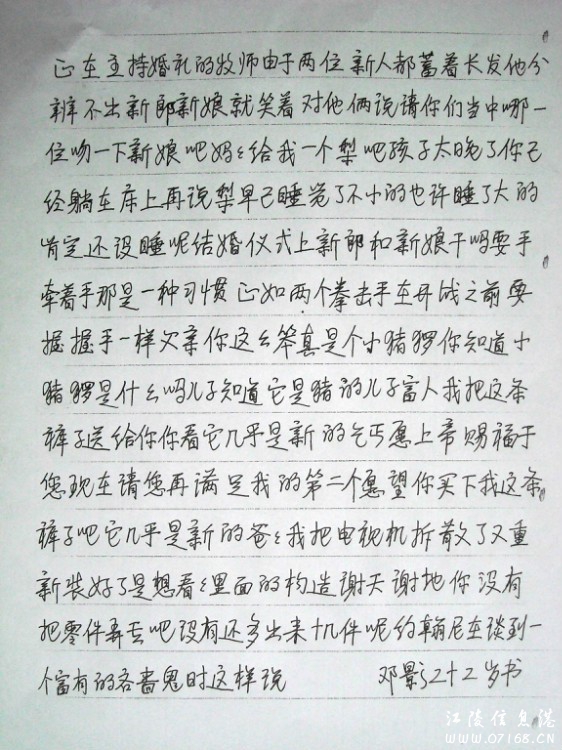 正在主持婚礼的牧师由于两位新人都蓄着长发他分
辨不出新郎新娘就笑着对他俩说请你们当中哪一
位吻一下新娘吧妈々给我一个梨吧孩子太晚了你已
经躺在床上再说梨早已睡觉了不小的也许睡了大的
肯定还没睡呢结婚仪式上新郎和新娘干吗要手
牵着手那是一种习惯正如两个拳击手在开战之前要
握握手一样父亲你这么笨真是个小猪猡你知道小
猪猡是什么吗儿子知道它是猪的儿子富人我把这条
裤子送给你你看它几乎是新的乞丐愿上帝赐福于
您现在请您再满足我的第二个愿望你买下我这条
裤子吧它几乎是新的爸々我把电视机拆散了又重
新装好了是想看々里面的构造谢天谢地你没有
把零件弄丢吧没有还多出来十几件呢约翰尼在谈到一
个富有的吝啬鬼时这样说 邓影二十二岁书
江陵信息港
WWW.07168.CN